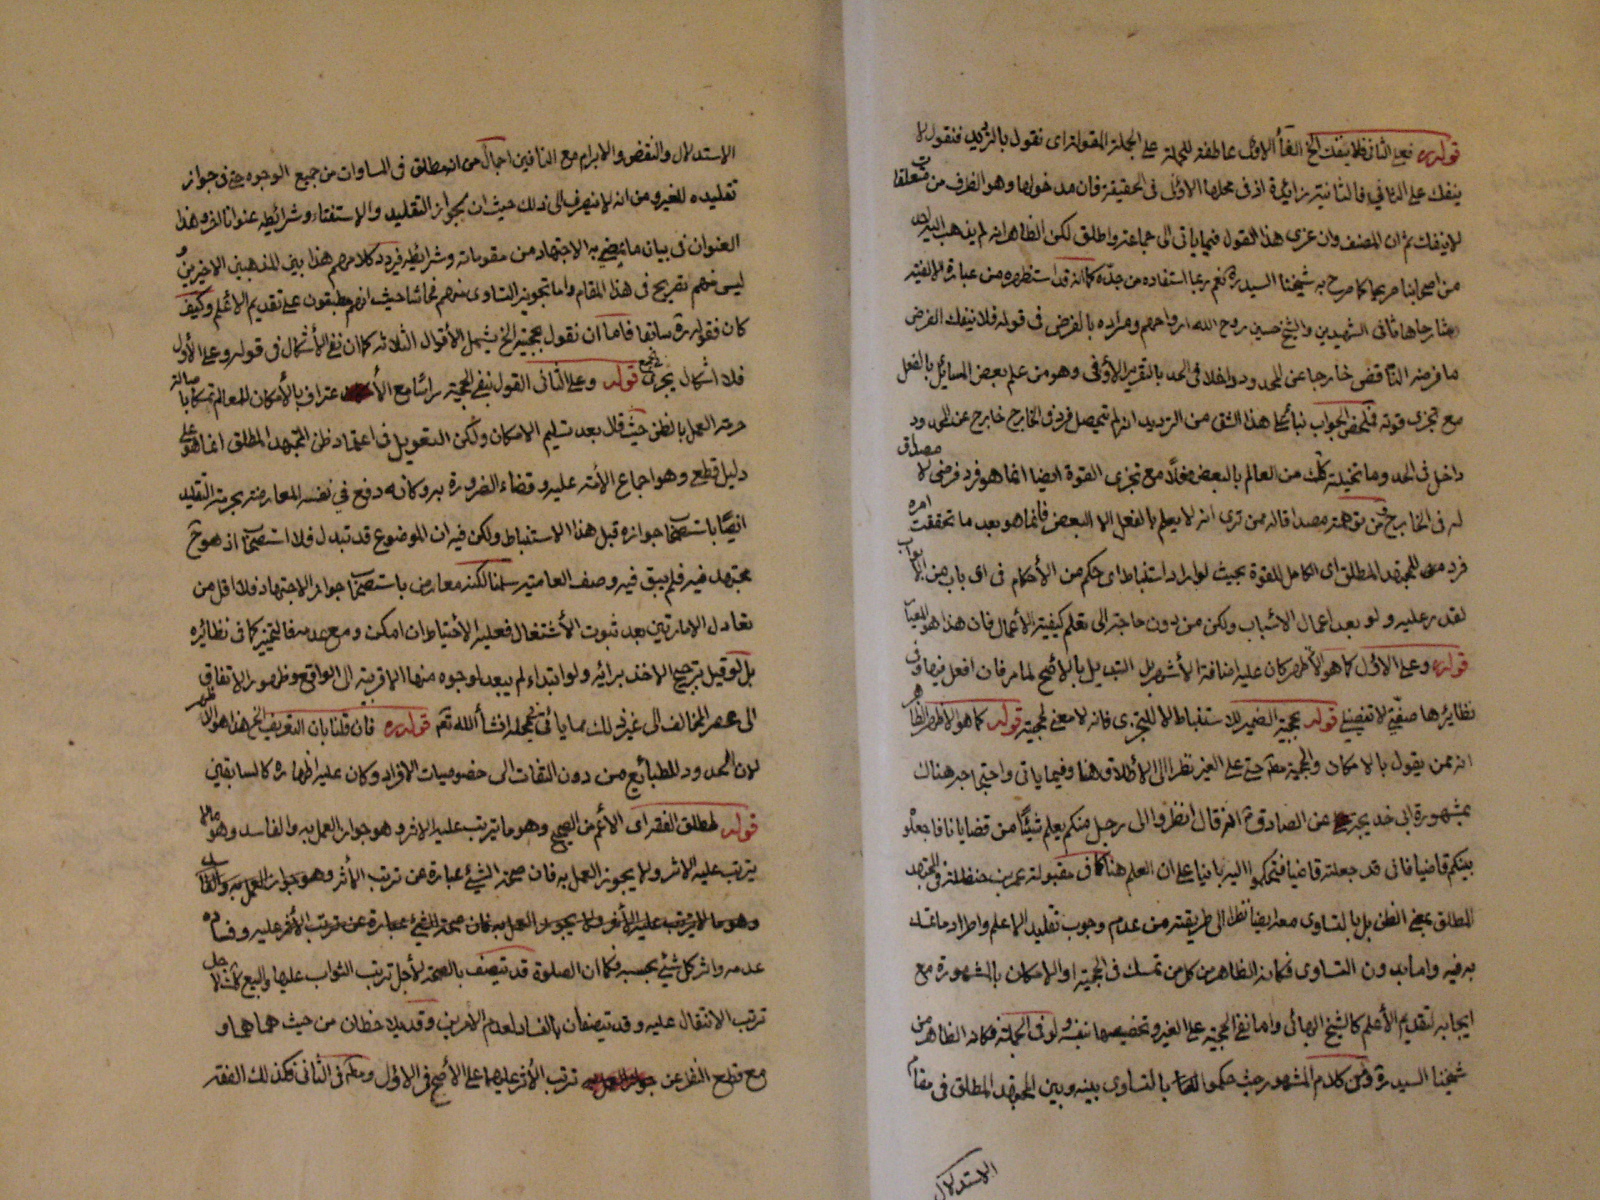 قوله ره فعلى الثانى فلا ينفك الخ الفاء الاولى عاطفة للجملة على الجملة المقولة اى نقول بالترديد فنقول لا
ينفك على الثانى فالثانية زائدة اذ فى محلها الاولى فى الحقيقة فان مدخولها وهو الظرف من متعلقات
لا ينفك ثم ان المصنف وان عزى هذا القول فيما ياتى الى جماعة واطلق لكن الظاهر انه لم يذهب اليه احد
من اصحابنا صريحا كما صرح به شيخنا السيد ره نعم ربما استفاده من جده كما انه قد استظهره من عبارة الالفية
شارحاها ثانى الشهيدين والشيخ حسين روح الله ارواحهم ومراده بالفرض فى قوله فلا ينفك الفرض
ما فرضه الناقض خارجا عن المحدود وداخلا فى الحد بالتقرير الأوفى وهو من علم بعض المسائل بالفعل
مع تجزى قوته فملخص الجواب بناء على هذا الشق من الترديد انه لم يتحصل فرد فى الخارج خارج عن المحدود
داخل فى الحد وما تخيلته من العالم بالبعض فعلا مع تجزى القوة ايضا انما هو فرد فرضى لا مصداق
له فى الخارج ومن توهمته مصداقا له ممن ترى انه لا يعلم بالفعل الا البعض فانما هو بعد ما تحققت امره
فرد من المجتهد المطلق اى الكامل للقوة بحيث لو اراد استنباط اى حكم من الأحكام فى اى باب من الابواب
لقدر عليه ولو بعد اعمال الاسباب ولكن من دون حاجة الى تعلم كيفية الأعمال فان هذا هو المعيار
قوله ره وعلى الاول كما هو الأظهر كان عليه اضافة الأشهر بل التبديل بالاصح لما مر فان افعل فيها وفى
نظايرها صفتى لا تفضيلى قوله بحجية الضمير للاستنباط لا للتجزى فانه لا معنى لحجيته قوله كما هو الاظهر الظاهر
انه ممن يقول بالامكان والحجية معا حتى على الغير نظرا الى الاطلاق هنا وفيما ياتى واحتجاجه هناك
بمشهورة ابى خديجة عن الصادق ع انه قال انظروا الى رجل منكم يعلم شيئا من قضايانا فاجعلوه
بينكم قاضيا فانى قد جعلته قاضيا فتحاكموا اليه بانيا على ان العلم هنا كما فى مقبولة عمر بن حنظلة فى المجتهد
المطلق بمعنى الظن بل بالتساوى معه ايضا نظرا الى طريقته من عدم وجوب تقليد الاعلم واطراد ما تمسك
به فيه واما بدون التساوى فكانه الظاهر من كل من تمسك فى الحجية او الامكان بالمشهورة مع
ايجابه لتقديم الأعلم كالشيخ البهائى واما نفى الحجية على الغير وتخصيصها بنفسه ولو فى الجملة فكانه الظاهر من
شيخنا السيد ره ومن كلام المشهور حيث حكموا بالتساوى بينه وبين المجتهد المطلق فى مقام
الاستدلال
الاستدلال والنقض والابرام مع النافين اجمالا من انه مطلق فى المساوات من جميع الوجوه حتى فى جواز
تقليده للغير ومن انه لا ينصرف الى ذلك حيث ان لجواز التقليد والاستفتاء وشرائطه عنوانا اخر وهذا
العنوان فى بيان ما يمضى به الاجتهاد من مقوماته وشرائطه فيردد كلامهم هذا بين المذهبين الاخيرين و
ليس منهم تصريح فى هذا المقام واما تجويز التساوى منهم فحاشا حيث انهم مطبقون على تقديم الاعلم وكيف
كان فقوله ره سابقا فاما ان نقول بحجيته الخ يشمل الأقوال الثلاثة كما ان نفى الأشكال فى قوله وعلى الأول
فلا اشكال يجرى قوله وعلى الثانى القول بنفى الحجية راسا مع الاعتراف بالأمكان للمعالم تمسكا باصالة
حرمة العمل بالظن حيث قال بعد تسليم الامكان ولكن التعويل فى اعتماد ظن المجتهد المطلق انما هو على
دليل قطعى وهو اجماع الأمة عليه وقضاء الضرورة به وكانه دفع فى نفسه المعارضة بحرمة التقليد
ايضا باستصحاب جوازه قبل هذا الاستنباط ولكن فيه ان الموضوع قد تبدل فلا استصحاب اذ هو ح
مجتهد فيه فلم يبق فيه وصف العامية سلمنا لكنه معارض باستصحاب جواز الاجتهاد فلا اقل من
تعادل الامارتين بعد ثبوت الأشتغال فعليه الأحتياط ان امكن ومع عدمه فالتخيير كما فى نظائره
بل لو قيل بترجيح الاخذ برائيه ولو ابتداء لم يبعد لوجوه منها الاقربية الى الواقع وظهور الاتفاق
الى عصر المخالف الى غير ذلك مما ياتى فى محله انشاء الله تعم قوله ره فان قلنا بان التعريف الخ هذا هو الاظهر
لان الحدود للطبائع من دون التفات الى خصوصيات الافراد وكان عليه اظهاره كالسابقين
قوله لمطلق الفقه اى الأعم من الصحيح وهو ما يترتب عليه الاثر وهو جواز العمل به والفاسد وهو ما لا
يترتب عليه الاثر ولا يجوز العمل به فان صحة الشيئ عبارة عن ترتب الأثر وهو جواز العمل به والفاسد
وهو ما لا يترتب عليه الأثر ولا يجوز العمل به فان صحة الشيئ عبارة عن ترتب الأثر عليه وفساده
عدمه واثر كل شيئ بحسبه فكما ان الصلوة قد تتصف بالصحة لأجل ترتب الثواب عليها والبيع مثلا لاجل
ترتب الانتقال عليه وقد تتصفان بالفساد لعدم الامرين وقد يلاحظان من حيث هما هما و
مع قطع النظر عن ترتب الأثر عليهما على الأصح فى الاول ومنكم فى الثانى فكذلك الفقه